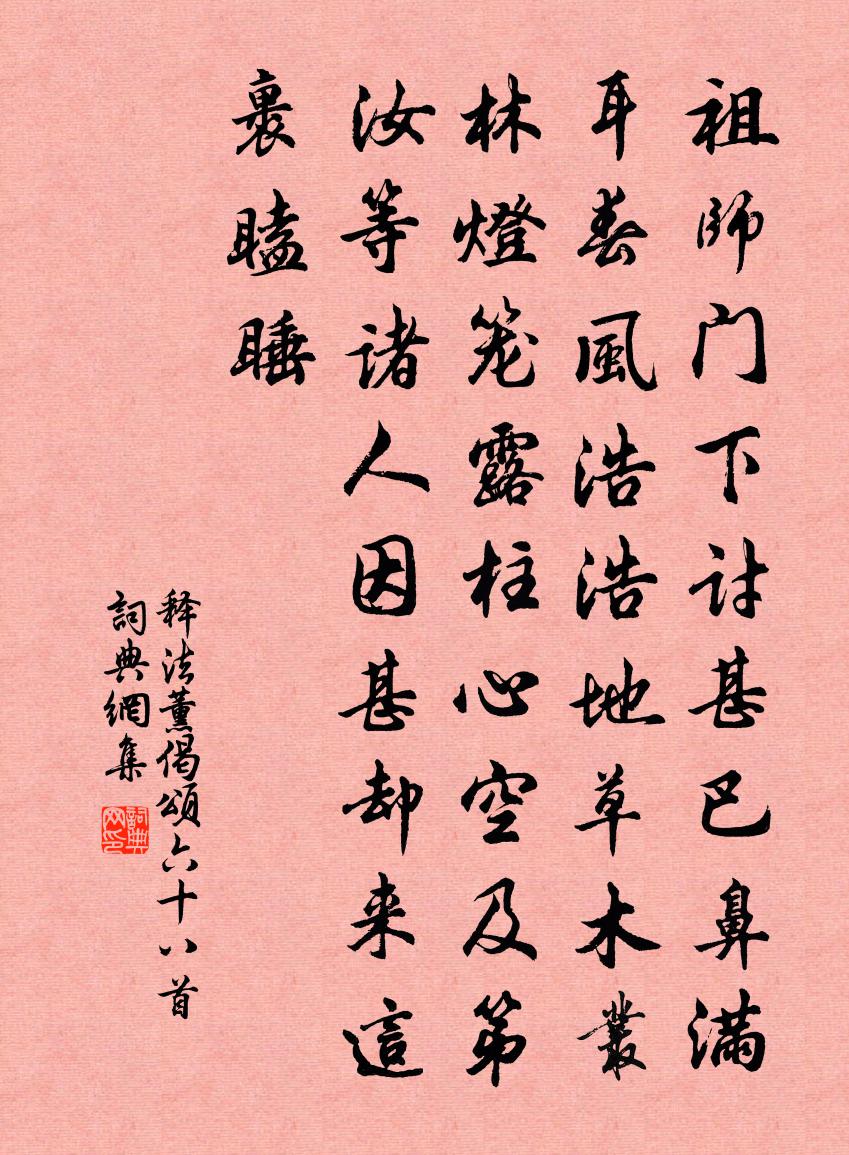 祖師门下討甚巴鼻满
耳春風浩浩地草木叢
林燈笼露柱心空及第
汝等诸人因甚却来這
裹瞌睡
释法薰偈頌六十八首
詞典網集
詞典网印